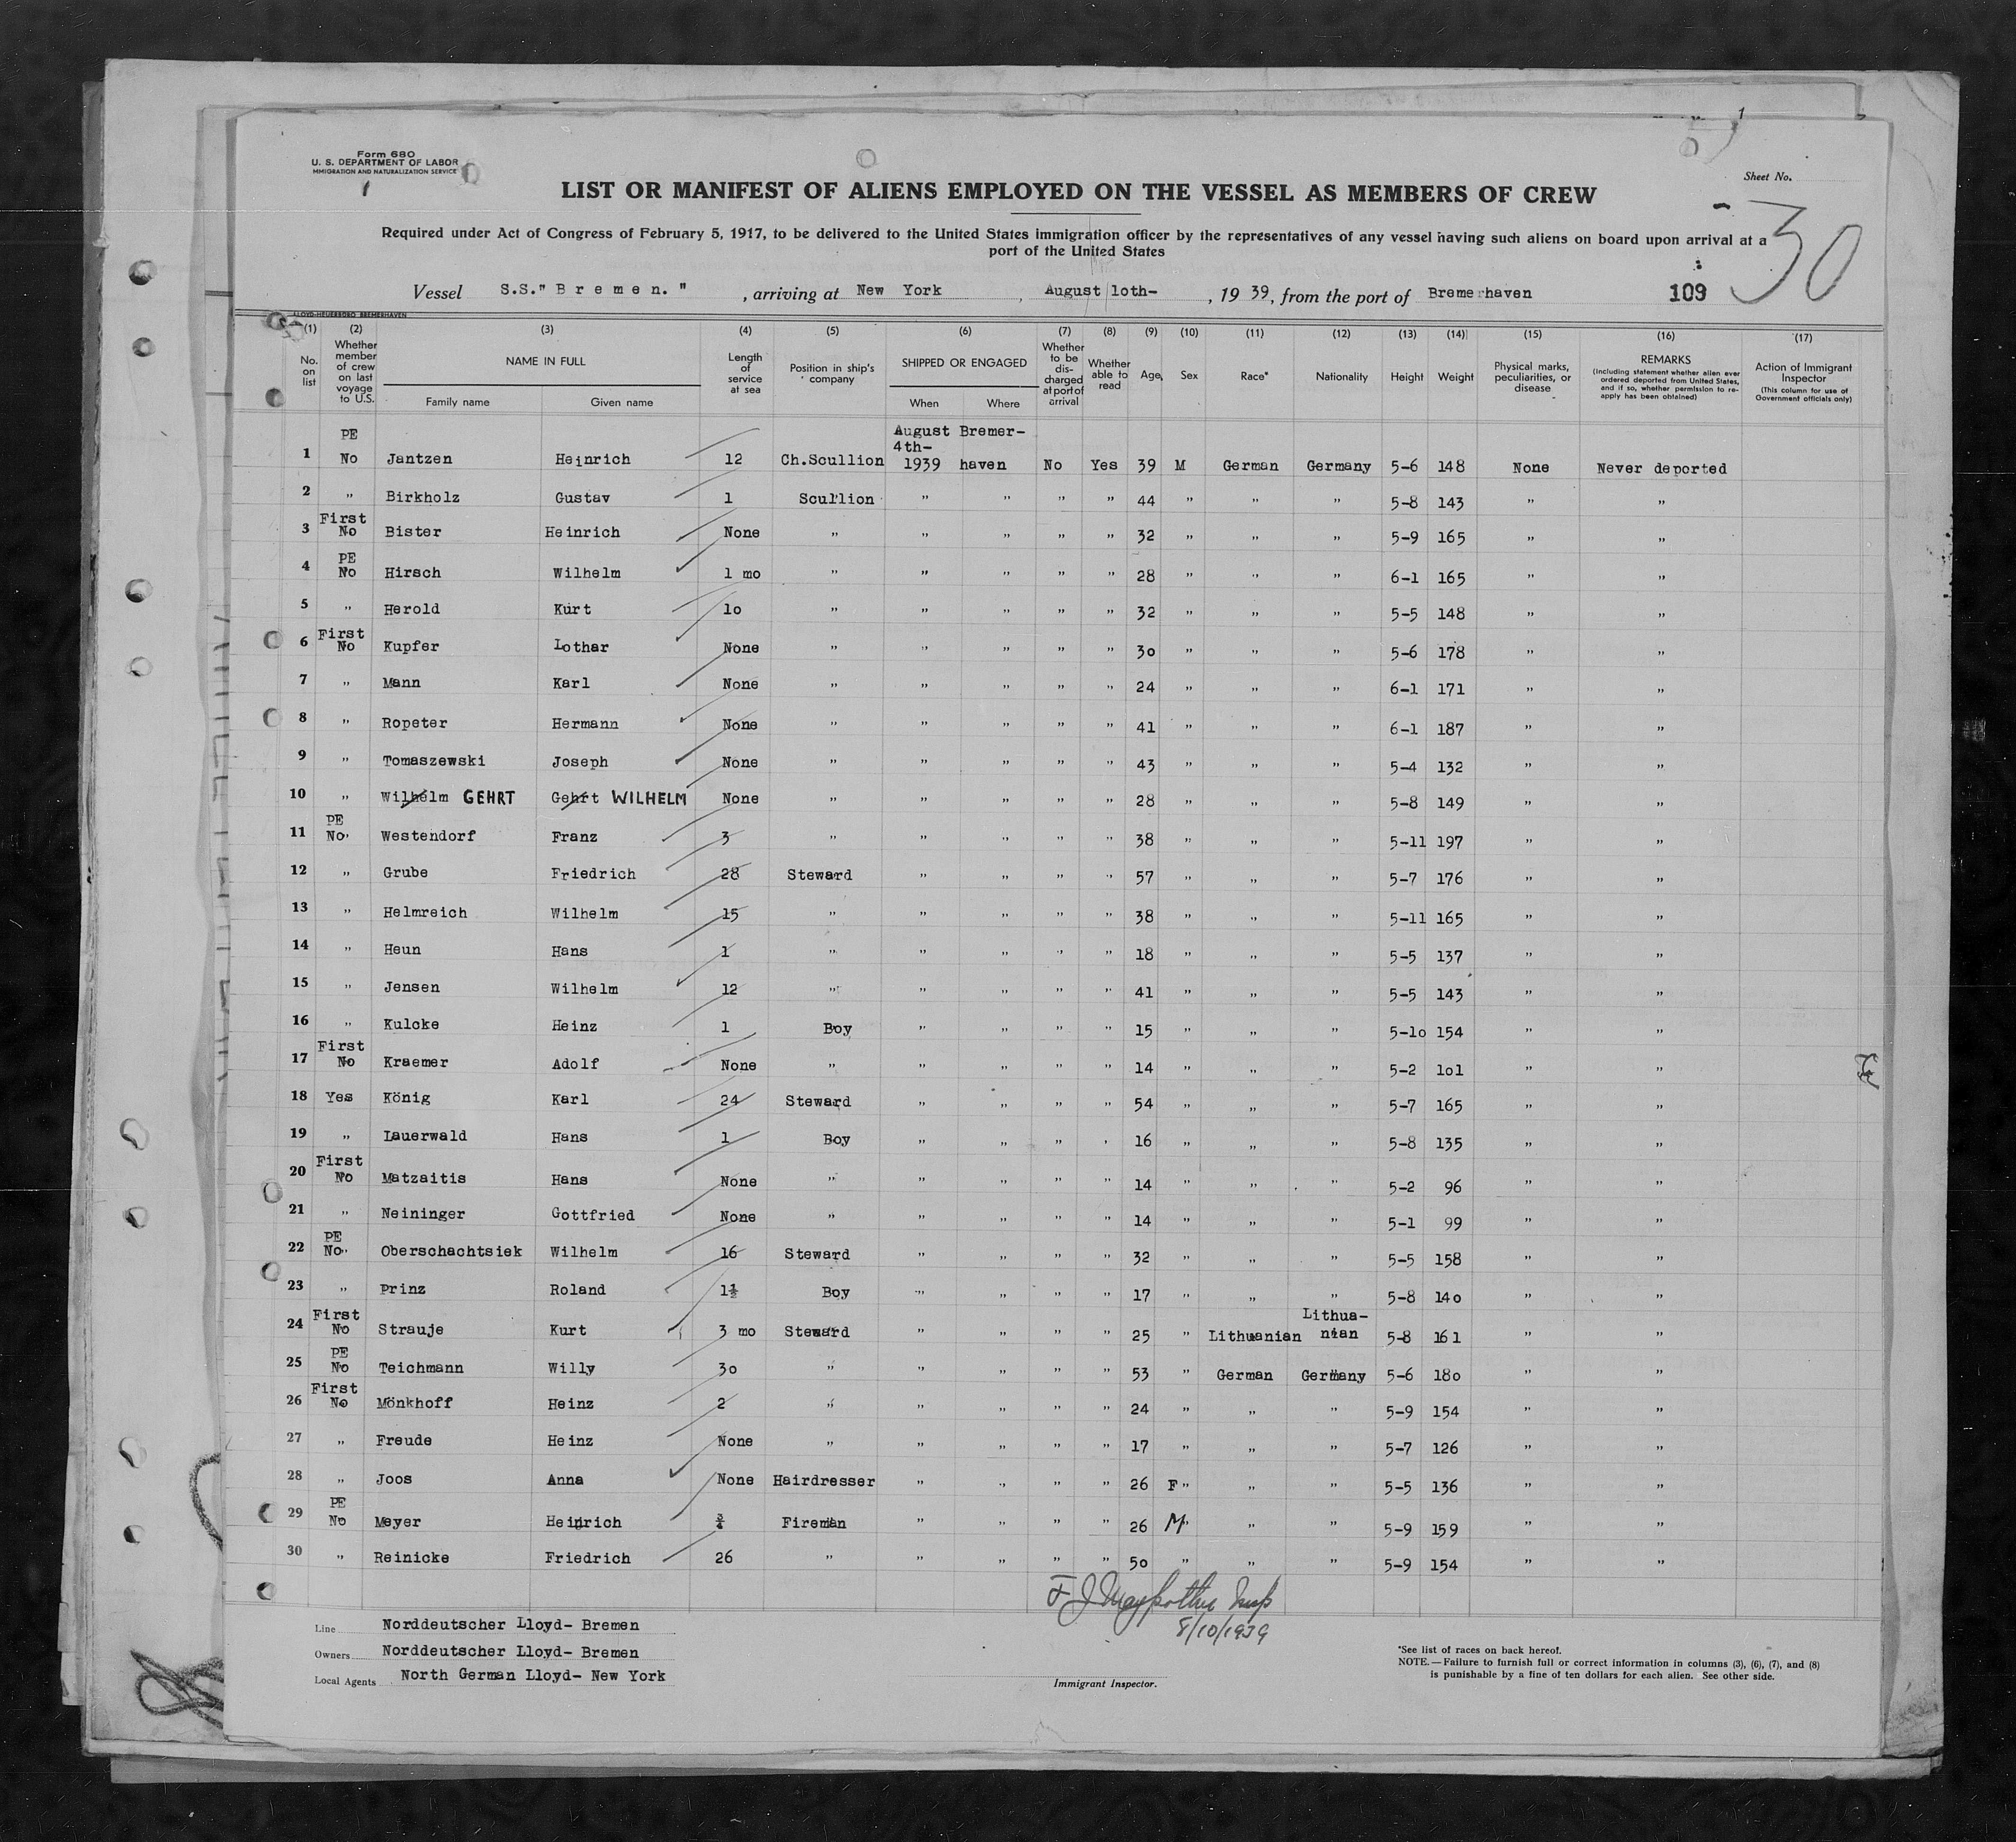 Form 680
U. S. DEPARTMENT OF LABOR
MMIGRATION AND NATURALIZATION SERVICE
1
Sheet No.
LIST OR MANIFEST OF ALIENS EMPLOYED ON THE VESSEL AS MEMBERS OF CREW
30
Required under Act of Congress of February 5, 1917, to be delivered to the United States immigration officer by the representatives of any vessel having such aliens on board upon arrival at a
port of the United States
Vessel S.S." B r e m e n. " , arriving at New York , August 1oth- , 19 39, from the port of Bremerhaven 109
LLOYD-HEUERBÜRO BREMERHAVEN
(1) (2) (3) (4) (5) (6) (7) (8) (9) (10) (11) (12) (13) (14) (15) (16) (17)
No. on list Whether member of crew on last voyage to U.S. NAME IN FULL Family name Given name Length of service at sea Position in ship's company SHIPPED OR ENGAGED When Where Whether to be discharged at port of arrival Whether able to read Age Sex Race* Nationality Height Weight Physical marks, peculiarities, or disease REMARKS (Including statement whether alien ever ordered deported from United States, and if so, whether permission to re-apply has been obtained) Action of Immigrant Inspector (This column for use of Government officials only)
1 PE No Jantzen Heinrich 12 Ch.Scullion August 4th- 1939 Bremer- haven No Yes 39 M German Germany 5-6 148 None Never deported
2 " Birkholz Gustav 1 Scullion " " " " 44 " " " 5-8 143 " "
3 First No Bister Heinrich None " " " " " 32 " " " 5-9 165 " "
4 PE No Hirsch Wilhelm 1 mo " " " " " 28 " " " 6-1 165 " "
5 " Herold Kurt 1o " " " " " 32 " " " 5-5 148 " "
6 First No Kupfer Lothar None " " " " " 3o " " " 5-6 178 " "
7 " Mann Karl None " " " " " 24 " " " 6-1 171 " "
8 " Ropeter Hermann None " " " " " 41 " " " 6-1 187 " "
9 " Tomaszewski Joseph None " " " " " 43 " " " 5-4 132 " "
10 " Wilhelm GEHRT Gehrt WILHELM None " " " " " 28 " " " 5-8 149 " "
11 PE No" Westendorf Franz 3 " " " " " 38 " " " 5-11 197 " "
12 " Grube Friedrich 28 Steward " " " " 57 " " " 5-7 176 " "
13 " Helmreich Wilhelm 15 " " " " " 38 " " " 5-11 165 " "
14 " Heun Hans 1 " " " " " 18 " " " 5-5 137 " "
15 " Jensen Wilhelm 12 " " " " " 41 " " " 5-5 143 " "
16 " Kulcke Heinz 1 Boy " " " " 15 " " " 5-1o 154 " "
17 First No Kraemer Adolf None " " " " " 14 " " " 5-2 1o1 " "
18 Yes König Karl 24 Steward " " " " 54 " " " 5-7 165 " "
19 " Lauerwald Hans 1 Boy " " " " 16 " " " 5-8 135 " "
20 First No Matzaitis Hans None " " " " " 14 " " " 5-2 96 " "
21 " Neininger Gottfried None " " " " " 14 " " " 5-1 99 " "
22 PE No" Oberschachtsiek Wilhelm 16 Steward " " " " 32 " " " 5-5 158 " "
23 " Prinz Roland 1½ Boy " " " " 17 " " " 5-8 14o " "
24 First No Strauje Kurt 3 mo Steward " " " " 25 " Lithuanian Lithua- nian 5-8 161 " "
25 PE No Teichmann Willy 3o " " " " " 53 " German Germany 5-6 18o " "
26 First No Mönkhoff Heinz 2 " " " " " 24 " " " 5-9 154 " "
27 " Freude Heinz None " " " " " 17 " " " 5-7 126 " "
28 " Joos Anna None Hairdresser " " " " 26 F" " " 5-5 136 " "
29 PE No Meyer Heinrich ¾ Fireman " " " " 26 M" " " 5-9 159 " "
30 " Reinicke Friedrich 26 " " " " " 5o " " " 5-9 154 " "
8/10/1939
Line Norddeutscher Lloyd- Bremen
Owners Norddeutscher Lloyd- Bremen
Local Agents North German Lloyd- New York
Immigrant Inspector.
*See list of races on back hereof.
NOTE.—Failure to furnish full or correct information in columns (3), (6), (7), and (8)
is punishable by a fine of ten dollars for each alien. See other side.